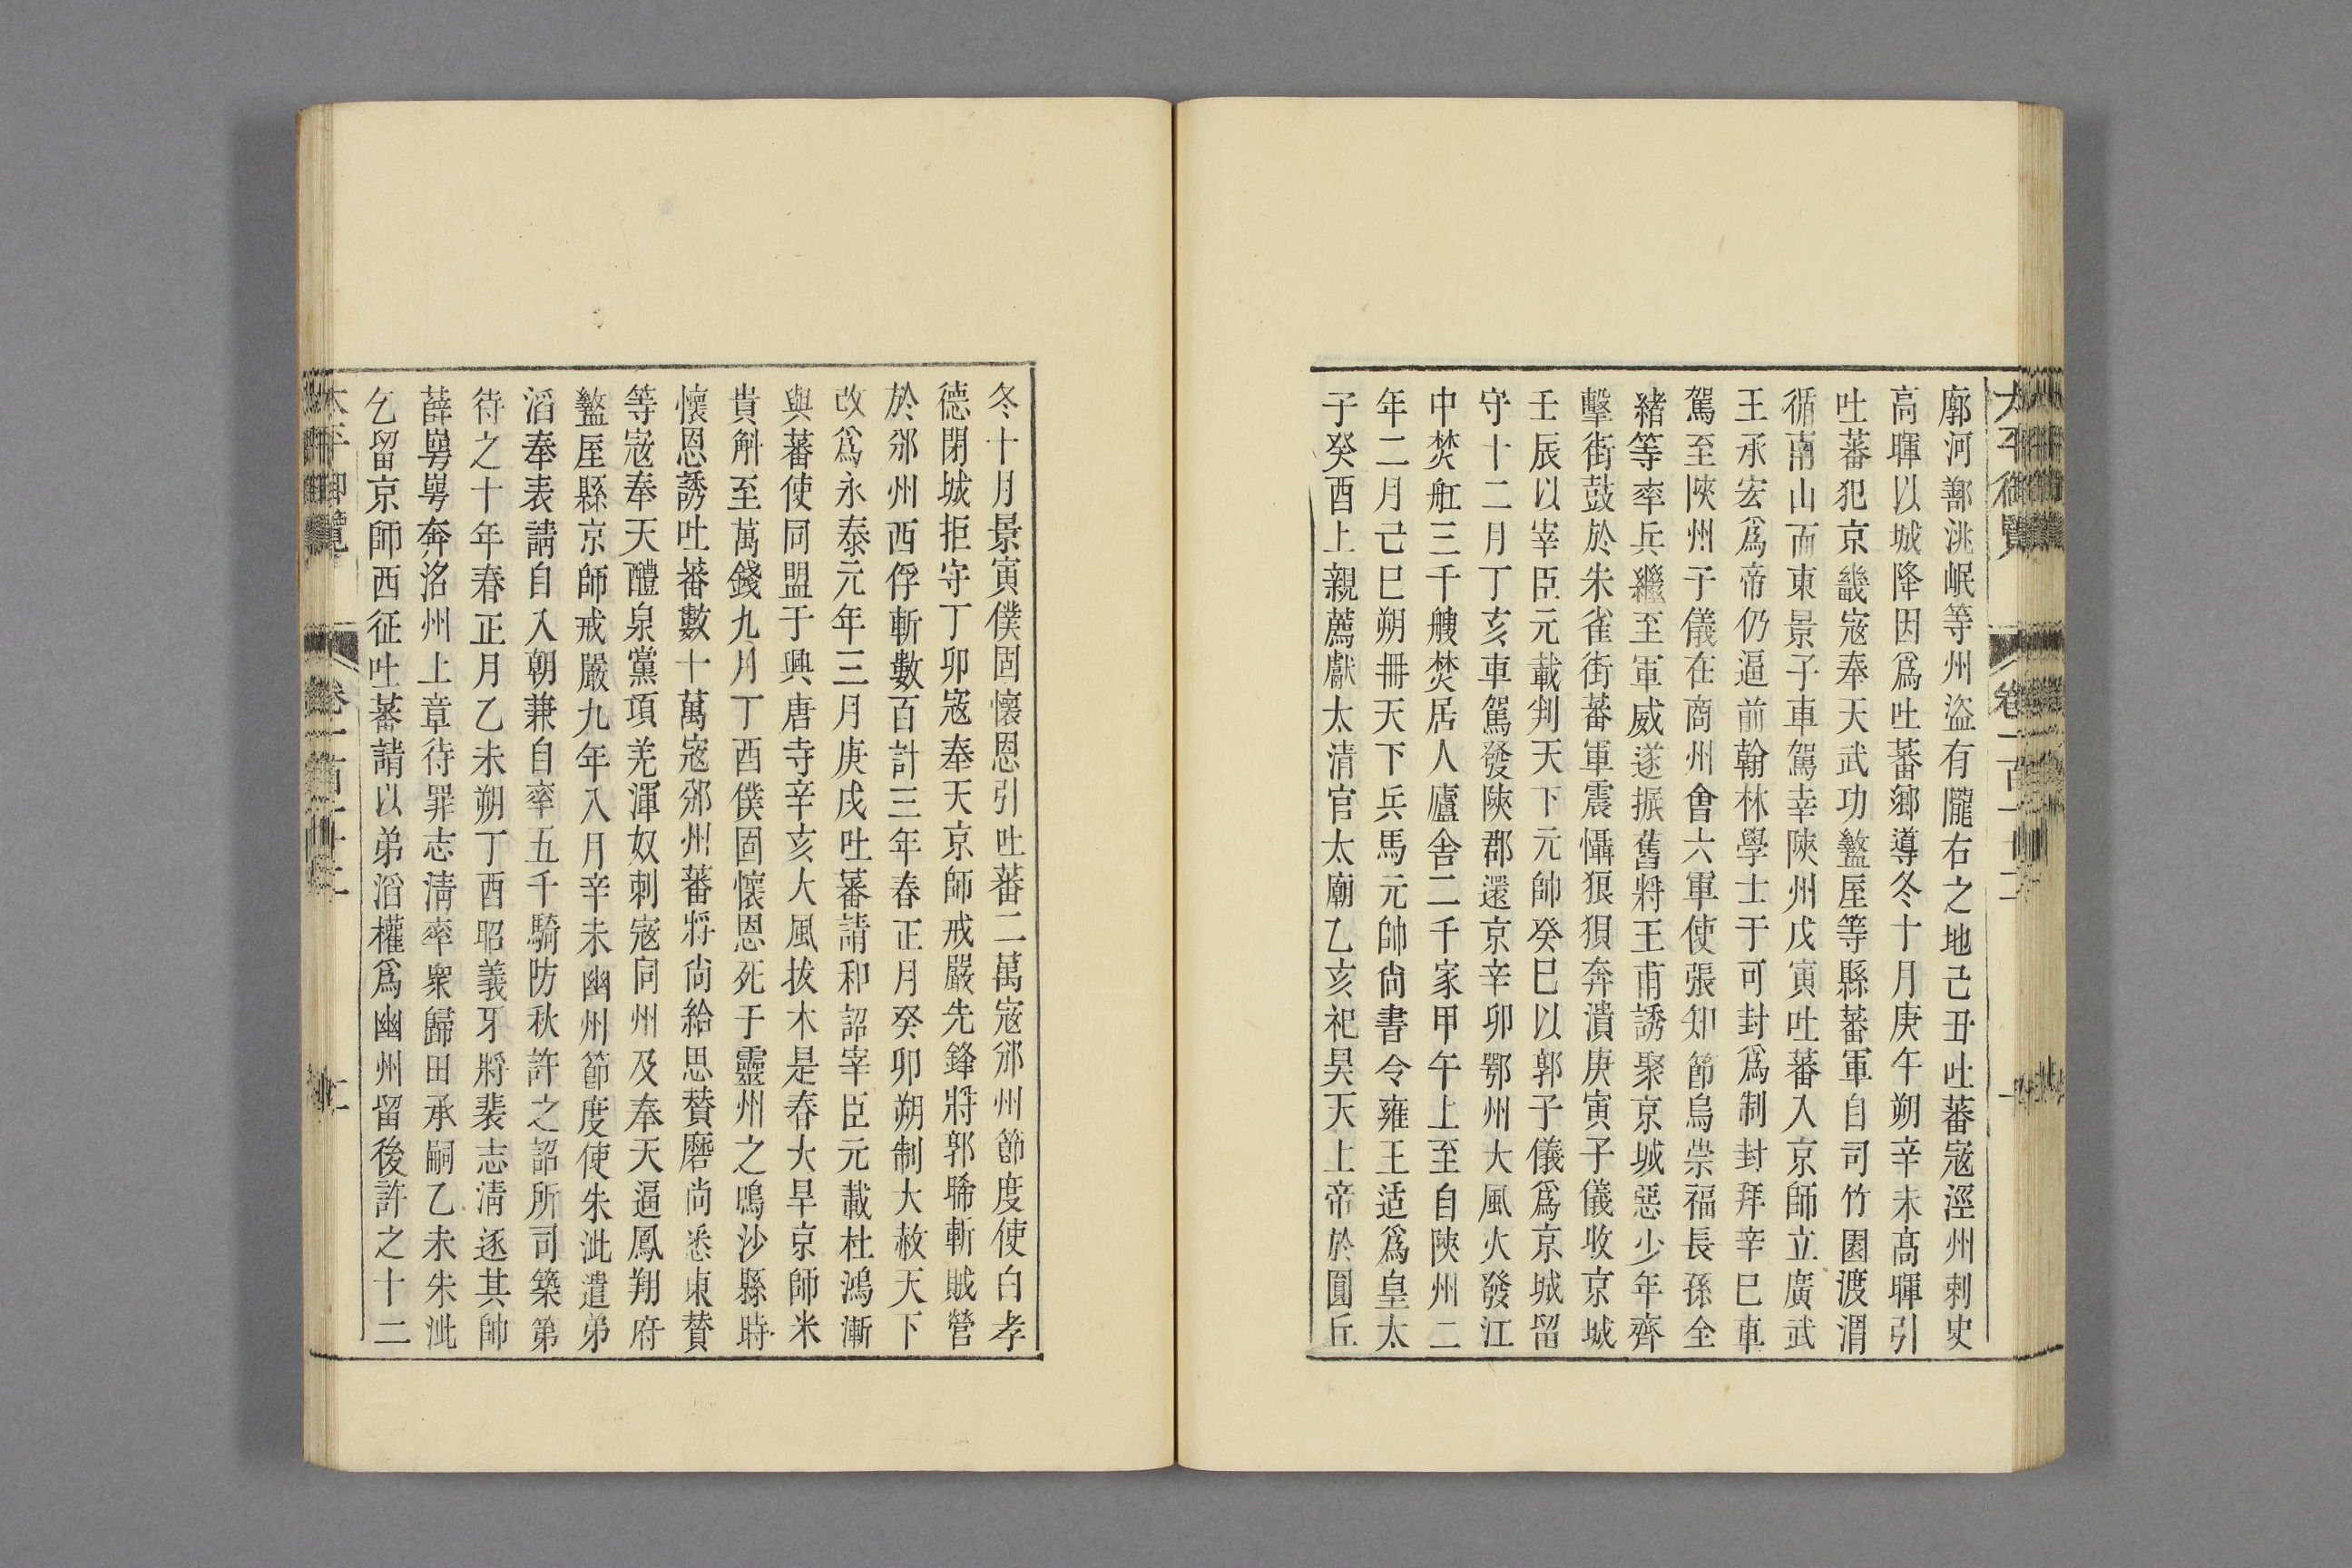 太平御覽 卷一百十三
廓河鄯洮岷等州盜有隴右之地己丑吐蕃寇涇州刺史
高暉以城降因爲吐蕃鄉導冬十月庚午朔辛未高暉引
吐蕃犯京畿寇奉天武功盩厔等縣蕃軍自司竹園渡渭
循南山而東景子車駕幸陝州戊寅吐蕃入京師立廣武
王承宏爲帝仍逼前翰林學士于可封爲制封拜辛巳車
駕至陝州子儀在商州會六軍使張知節烏崇福長孫全
緒等率兵繼至軍威遂振舊將王甫誘聚京城惡少年齊
擊街鼓於朱雀街蕃軍震懾狼狽奔潰庚寅子儀收京城
壬辰以宰臣元載判天下元帥癸巳以郭子儀爲京城留
守十二月丁亥車駕發陝郡還京辛卯鄂州大風火發江
中焚舡三千艘焚居人廬舍二千家甲午上至自陝州二
年二月己巳朔冊天下兵馬元帥尚書令雍王适爲皇太
子癸酉上親薦獻太清官太廟乙亥祀昊天上帝於圓丘
冬十月景寅僕固懷恩引吐蕃二萬寇邠州節度使白孝
德閉城拒守丁卯寇奉天京師戒嚴先鋒將郭晞斬賊營
於邠州西俘斬數百計三年春正月癸卯朔制大赦天下
改爲永泰元年三月庚戌吐蕃請和詔宰臣元載杜鴻漸
與蕃使同盟于興唐寺辛亥大風拔木是春大旱京師米
貴斛至萬錢九月丁酉僕固懷恩死于靈州之鳴沙縣時
懷恩誘吐蕃數十萬寇邠州蕃將尚給思贊磨尚悉東贊
等寇奉天醴泉黨項羌渾奴刺寇同州及奉天逼鳳翔府
盩厔縣京師戒嚴九年八月辛未幽州節度使朱泚遣弟
滔奉表請自入朝兼自率五千騎防秋許之詔所司築第
待之十年春正月乙未朔丁酉昭義牙將裴志清逐其帥
薛㟧㟧奔洺州上章待罪志清率衆歸田承嗣乙未朱泚
乞留京師西征吐蕃請以弟滔權爲幽州留後許之十二
太平御覽 卷一百十三